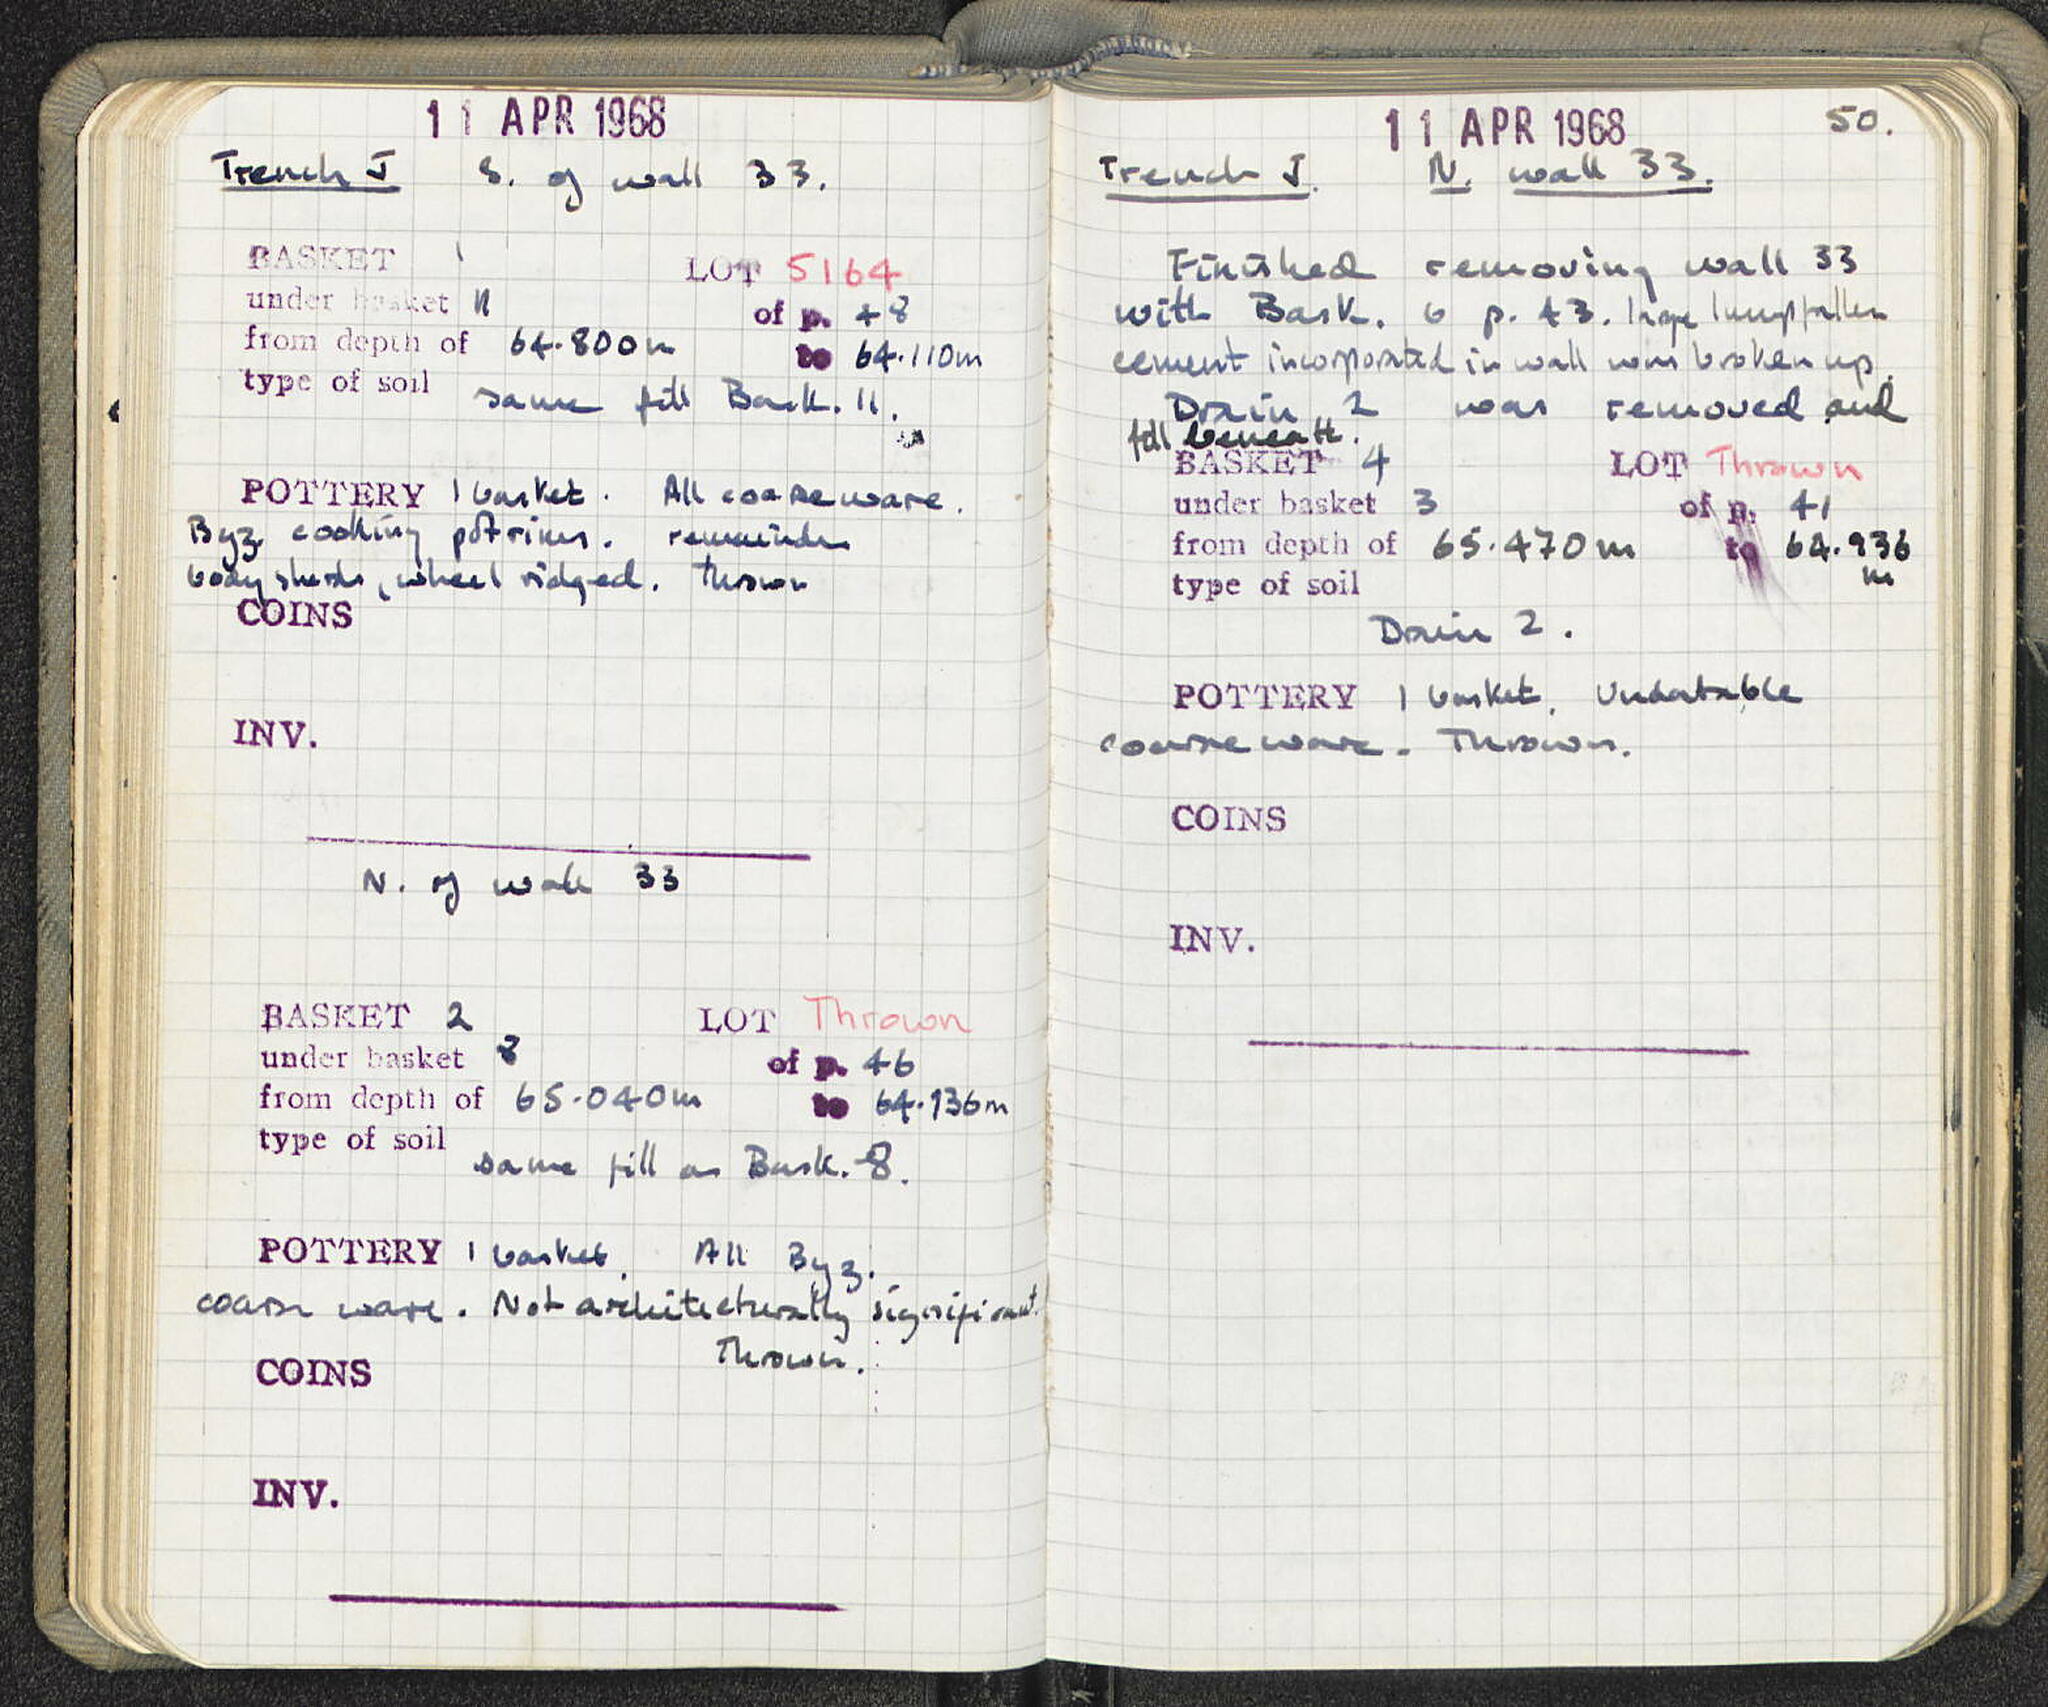 11 APR 1968
Trench J S. of wall 33.
BASKET 1 LOT 5164
under basket 11 of p. 48
from depth of 64.800m to 64.110m
type of soil same fill Bask. 11.
POTTERY 1 basket. All coarse ware.
Byz. cooking pot rims. remainder
body sherds, wheel ridged. thrown
COINS
INV.
N. of wall 33
BASKET 2 LOT Thrown
under basket of p. 46
from depth of 65.040m to 64.936m
type of soil same fill as Bask. 8.
POTTERY 1 basket. All Byz.
coarse ware. Not architecturally significant.
Thrown.
COINS
INV.
11 APR 1968 50.
Trench J. N. wall 33.
Finished removing wall 33
with Bask. 6 p. 43. large lump fallen
cement incorporated in wall was broken up.
Drain 2 was removed and
fill beneath.
BASKET 4 LOT Thrown
under basket 3 of p. 41
from depth of 65.470m to 64.936
m
type of soil
Drain 2.
POTTERY 1 basket. Undatable
coarse ware. Thrown.
COINS
INV.